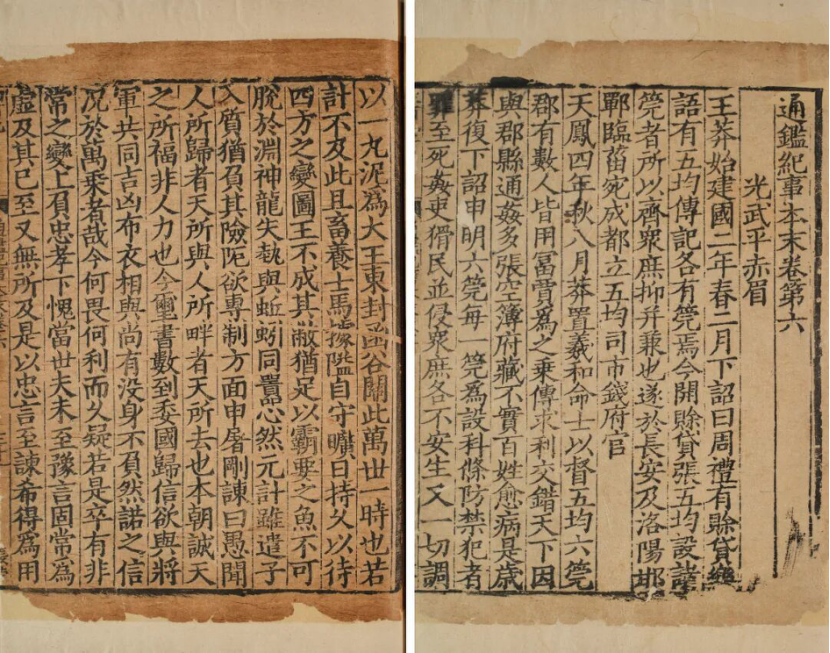 通鑑紀事本末卷第六
光武平赤眉
王莽始建國二年春二月下詔曰周禮有賒貸樂
語有五均傳記各有筦焉今開賒貸張五均設諸
筦者所以齊衆庶抑幷兼也遂於長安及洛陽邯
鄲臨菑宛成都立五均司市錢府官
天鳳四年秋八月莽置羲和命士以督五均六筦
郡有數人皆用冨賈爲之乘傳求利交錯天下因
與郡縣通姦多張空簿府藏不實百姓愈病是歲
莽復下詔申明六筦每一筦爲設科條防禁犯者
罪至死姦吏猾民並侵衆庶各不安生又一切調
以一丸泥爲大王東封函谷關此萬世一時也若
計不及此且畜養士馬據隘自守曠日持久以待
四方之變圖王不成其敝猶足以霸要之魚不可
脫於淵神龍失埶與蚯蚓同囂心然元計雖遣子
入質猶負其險阨欲專制方面申屠剛諫曰愚聞
人所歸者天所與人所畔者天所去也本朝誠天
之所福非人力也今璽書數到委國歸信欲與將
軍共同吉凶布衣相與尚有没身不負然諾之信
况於萬乘者哉今何畏何利而久疑若是卒有非
常之變上負忠孝下愧當世夫未至豫言固常爲
虛及其已至又無所及是以忠言至諫希得爲用